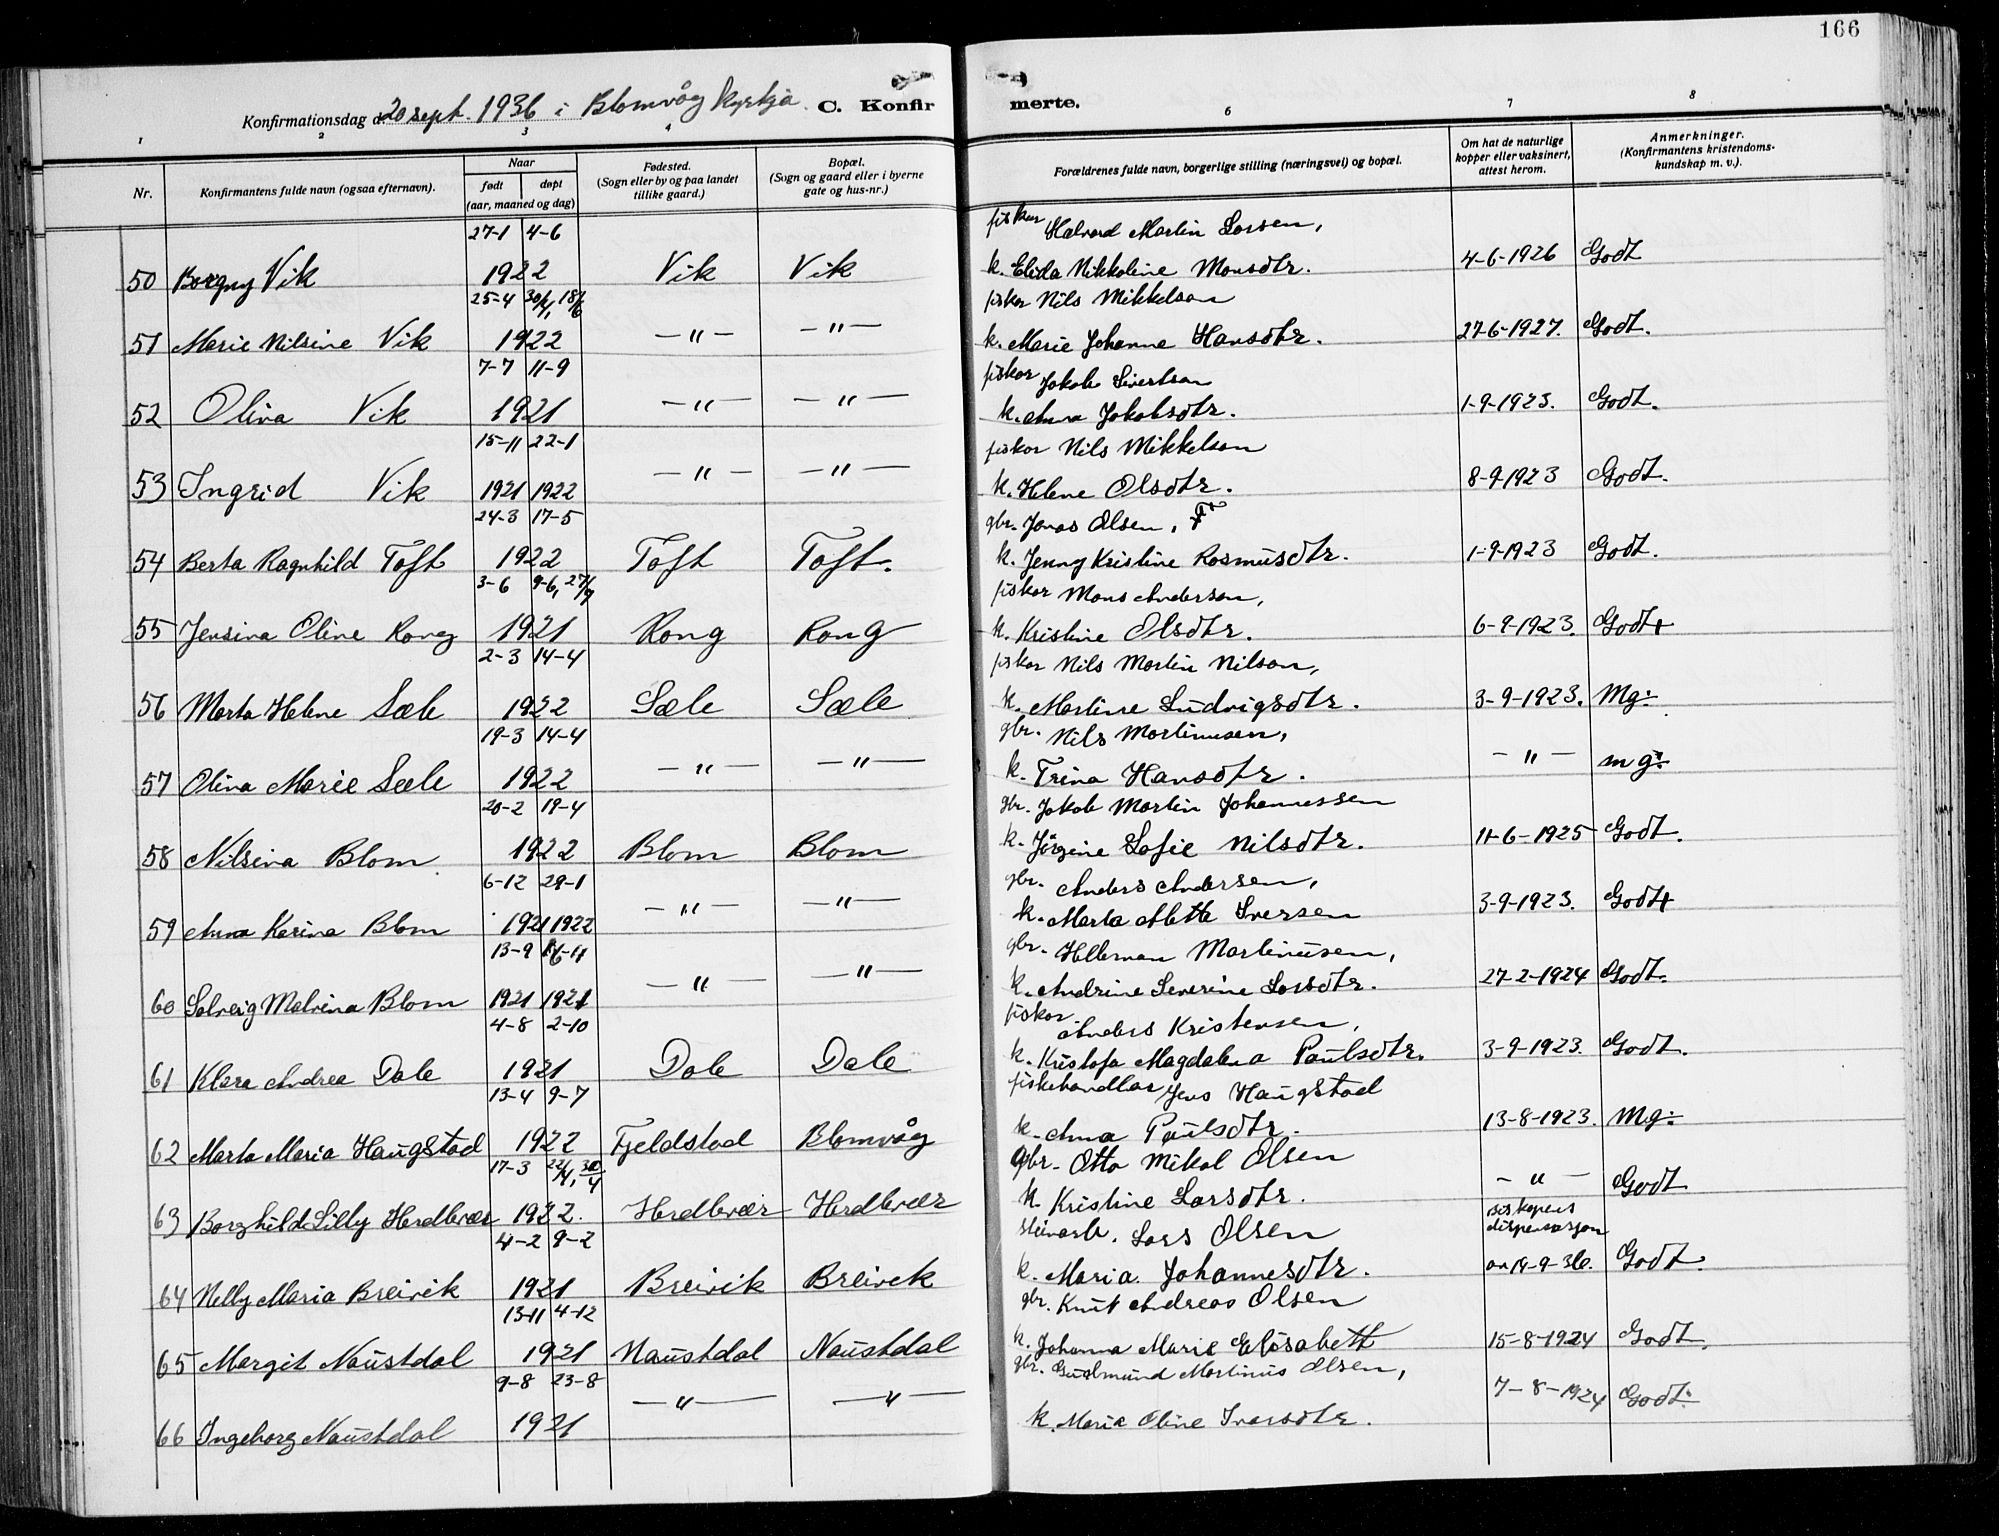 166
Konfirmationsdag d. 20 sept. 1936 i Blomvåg kyrkja. C. Konfir merte.
1 2 3 4 6 7 8
Nr. Konfirmantens fulde navn (ogsaa efternavn). Naar født døpt (aar, maaned og dag) Fødested. (Sogn eller by og paa landet tillike gaard.) Bopæl. (Sogn og gaard eller i byerne gate og hus-nr.) Forældrenes fulde navn, borgerlige stilling (næringsvei) og bopæl. Om hat de naturlige kopper eller vaksinert, attest herom. Anmerkninger. (Konfirmantens kristendoms-kundskap m. v.).
27-1 4-6 fiskar Halvard Martin Larsen,
50 Borgny Vik 1922 Vik Vik k. Elida Nikkoline Monsdtr. 4-6-1926 Godt
25-4 30/4, 18/6 fiskar Nils Mikkelson
51 Marie Nilsine Vik 1922 — " — — " — k. Marie Johanne Hansdtr. 27-6-1927. Godt.
7-7 11-9 fiskar Jakob Sivertson
52 Olina Vik 1921 — " — — " — k. Anna Jakobsdtr. 1-9-1923. Godt.
15-11 22-1 fiskar Nils Mikkelson
53 Ingrid Vik 1921 1922 — " — — " — k. Helene Olsdtr. 8-9-1923 Godt.
24-3 17-5 gbr. Jonas Olsen,
54 Berta Ragnhild Toft 1922 Toft Toft. k. Jenny Kristine Rasmusdtr. 1-9-1923 Godt.
3-6 9-6, 27/9 fiskar Mons Anderson,
55 Jensina Oline Rong 1921 Rong Rong k. Kristine Olsdtr. 6-9-1923. Godt+
2-3 14-4 fiskar Nils Martin Nilson,
56 Marta Helene Sæle 1922 Sæle Sæle k. Martine Ludvigsdtr. 3-9-1923. Mg÷
19-3 14-4 gbr. Nils Martinusen,
57 Olina Marie Sæle 1922 — " — — " — k. Trina Hansdtr. — " — mg÷
20-2 19-4 gbr. Jakob Martin Johannessen
58 Nilsina Blom 1922 Blom Blom k. Jörgine Sofie Nilsdtr. 11-6-1925 Godt.
6-12 29-1 gbr. Anders Andersen,
59 Anna Karina Blom 1921 1922 — " — — " — k. Marta Mette Iversen 3-9-1923. Godt+
13-9 6-11 gbr. Helleman Martinusen,
60 Solveig Malvina Blom 1921 1921 — " — — " — k. Andrine Severine Larsdtr. 27-2-1924 Godt.
4-8 2-10 fiskar Anders Kristensen,
61 Klara Andrea Dale 1921 Dale Dale k. Kristofa Magdalena Paulsdtr. 3-9-1923. Godt.
13-4 9-7 fiskehandlar Jens Haugstad
62 Marta Maria Haugstad 1922 Fjeldstad Blomvåg k. Anna Paulsdtr. 13-8-1923. Mg÷
17-3 22/4, 30/4 gbr. Otto Mikal Olsen
63 Borghild Lilly Herdlevær 1922. Herdlevær Herdlevær k. Kristine Larsdtr. — " — Godt
4-2 9-2 steinarb. Lars Olsen biskopens dispensasjon
64 Nelly Maria Breivik 1921 Breivik Breivek k. Maria Johannesdtr. av 19-9-36. Godt.
13-11 4-12 gbr. Knut Andreas Olsen
65 Margit Naustdal 1921 Naustdal Naustdal k. Johanna Marie Elisabett 15-8-1924 Godt.
9-8 23-8 gbr. Gudmund Martinus Olsen,
66 Ingeborg Naustdal 1921 — " — — " — k. Maria Oline Ivarsdtr. 7-8-1924 Godt.